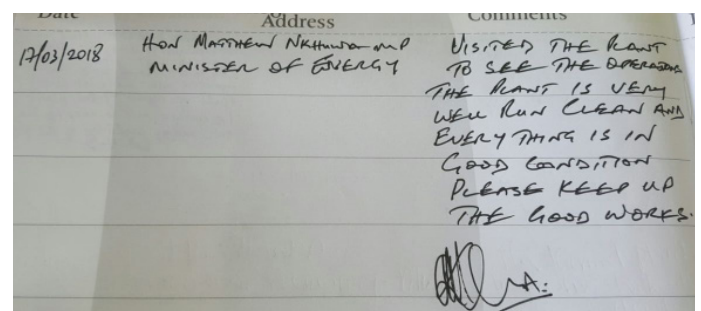 Date
Address
Comments
17/03/2018
HON MATTHEW NKHUWA MP
MINISTER OF ENERGY
VISITED THE PLANT
TO SEE THE OPERATIONS
THE PLANT IS VERY
WELL RUN CLEAN AND
EVERY THING IS IN
GOOD CONDITION
PLEASE KEEP UP
THE GOOD WORKS.